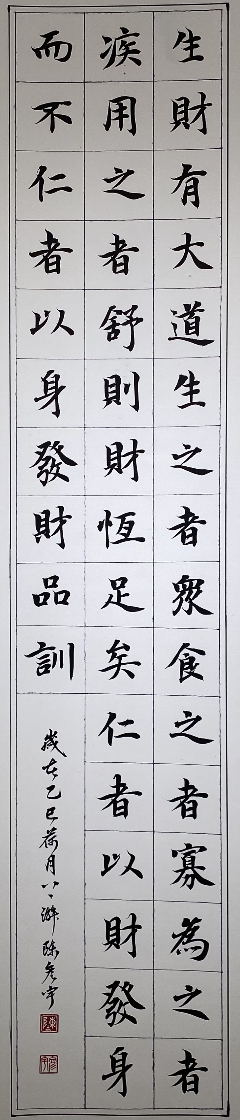 生財有大道生之者眾食之者寡為之者
疾用之者舒則財恆足矣仁者以財發身
而不仁者以身發財品訓
歲在乙巳荷月陳彥宇
陳